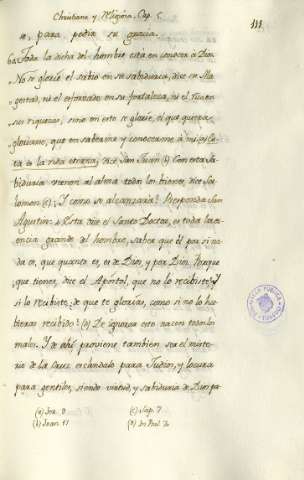 Christiana y Religiosa, Cap. 5. 111.
se, para pedir su gracia.
6a. Toda la dicha del hombre está en conocer a Dios.
No se glorie el sabio en su sabiduria, dice su Ma-
gestad, ni el esforzado en su fortaleza, ni el rico en
sus riquezas, sino en esto se glorie, el que quiera
gloriarme, que en saberme y conocerme à mi, y es-
ta es la vida eterna, dice San Juan (b) Con esta Sa-
biduria vienen al alma todos los bienes, dice Sa-
lomon (c) Y como se alcanzaria? Responda San
Agustin: Esta, dice el Santo Doctor, es toda la ci-
encia grande del hombre, saber que él por si na-
da es, que quanto es, es de Dios, y por Dios. Porque
que tienes, dice el Apóstol, que no lo recibiste? Y
si lo recibiste, de que te glorias, como si no lo hu-
bieras recibido? (d) De ignorar esto nacen todos los
males. Y de ahí proviene tambien ser el miste-
rio de la Cruz escándalo para Judios, y locura
para gentiles, siendo virtud, y sabiduria de Dios pa-
(a) Jra. 9. (c) Sap. 7
(b) Joan. 17 (d) In Psal. 70